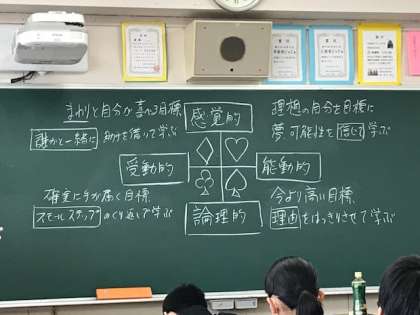 まわりと自分が喜べる目標
誰かと一緒に 助けを借りて学ぶ
感覚的
理想の自分を目標に
夢 可能性を信じて学ぶ
受動的
能動的
確実に手が届く目標
スモールステップのくり返しで学ぶ
論理的
今より高い目標
理由をはっきりさせて学ぶ